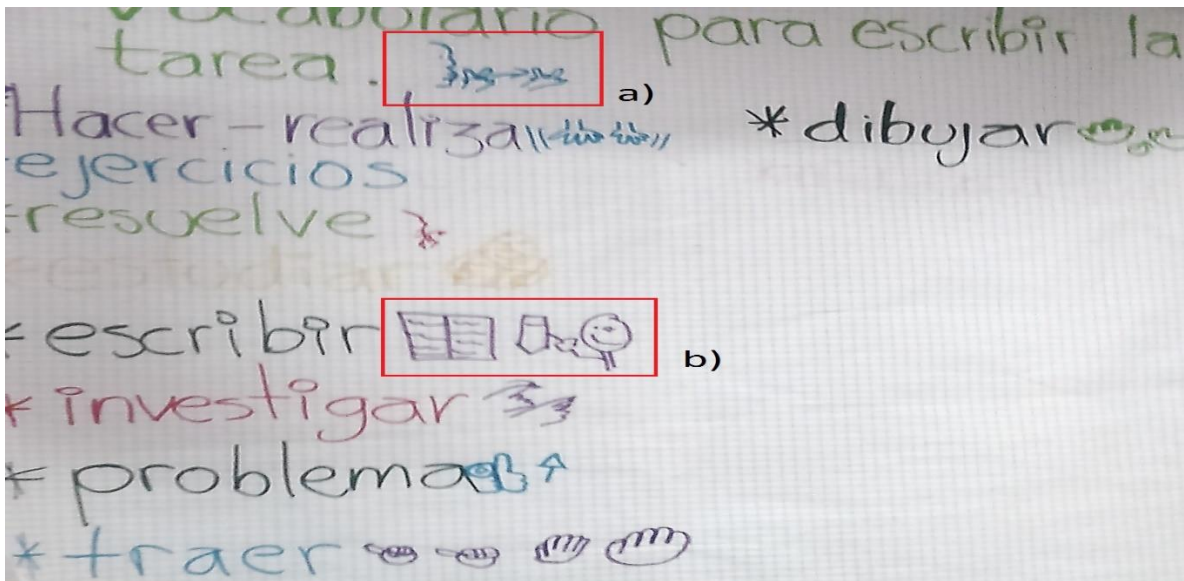 vocabulario para escribir la
tarea.
a)
Hacer-realiza * dibujar
ejercicios
-resuelve
estudiar
* escribir
b)
* investigar
* problema
* traer